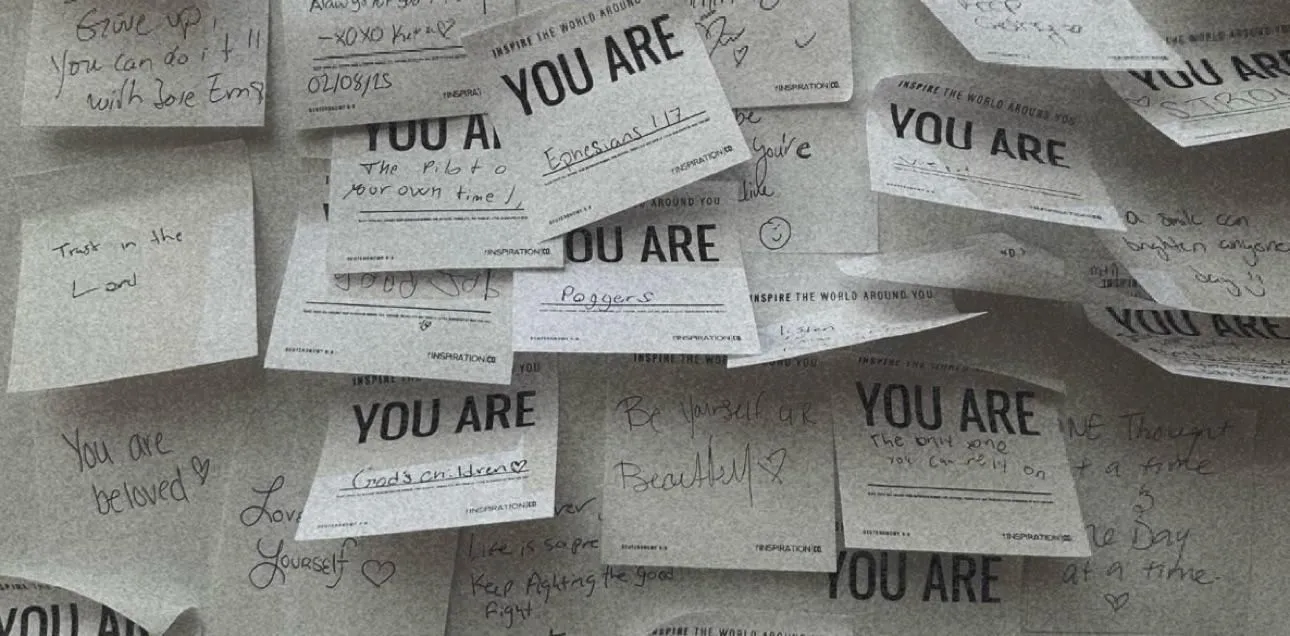 Give up,
You can do it !!
with Jose Eng
-XOXO
02/08/25
INSPIRE THE WORLD AROUND
YOU ARE
Ephesians 1:17
INSPIRATION.CO
INSPIRATION.CO
Keep
THE WORLD AROUND YOU
YOU ARE
STRO
INSPIRE THE WORLD AROUND YOU
YOU ARE
YOU AR
The Pilot o
your own time!
INSPIRATION.CO
be
You're
like
a smile can
brighten anyone
day
Trust in the
Lord
Good Job
INSPIRATION.CO
AROUND YOU
OU ARE
Poggers
INSPIRATION.CO
INSPIRE THE WORLD AROUND YOU
YOU ARE
INSPIRE THE WOR
YOU
INSPIRE THE
YOU ARE
God's children
INSPIRATION.CO
Be Yourself ur
Beautiful
INSPIRATION.CO
INSPIRE THE WORLD
YOU ARE
The only one
You can rely on
INSPIRATION.CO
NE Thought
t a time
&
ne Day
at a time.
You are
beloved
Love
Yourself
ver,
Life is so pre
Keep fighting the good
fight
YOU ARE
YOU AR
INSPIRE THE WORLD AROUND YOU